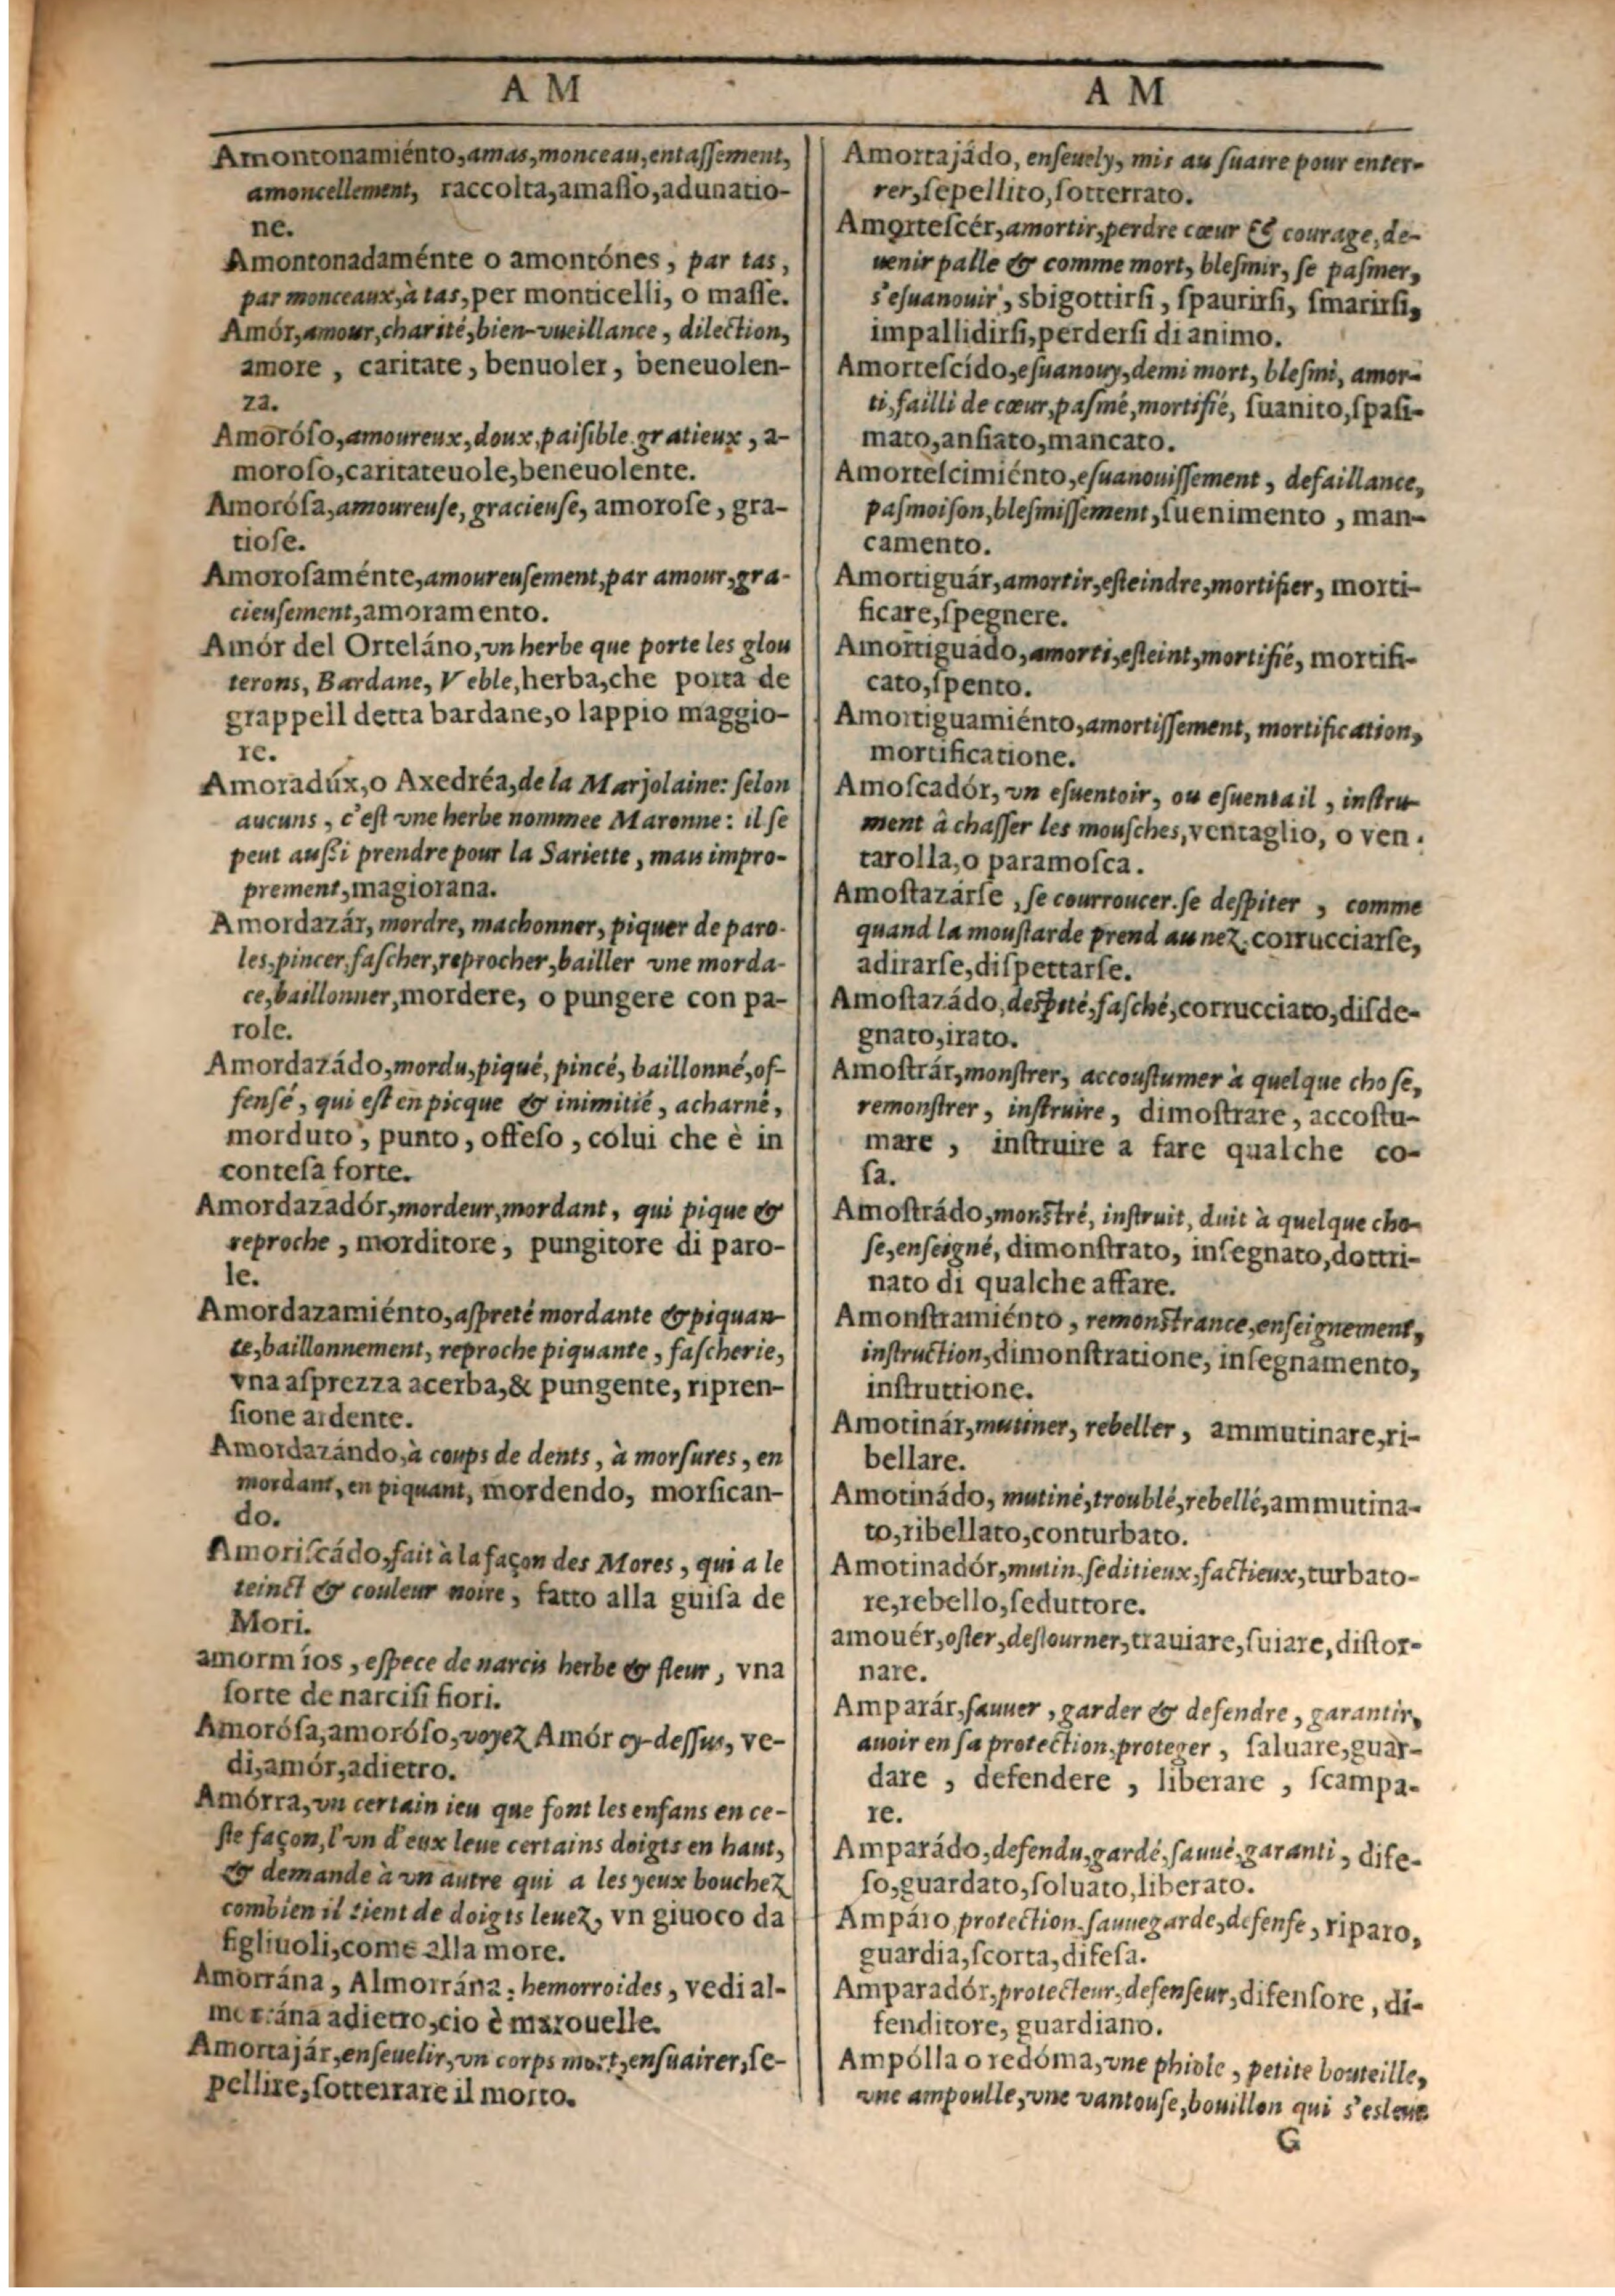 A M
Amontonamiénto, amas, monceau, entaſſement,
amoncellement, raccolta, amaſſo, adunatio-
ne.
Amontonadaménte o amontónes, par tas,
par monceaux, à tas, per monticelli, o maſſe.
Amór, amour, charité, bien-vueillance, dilection,
amore, caritate, benuoler, beneuolen-
za.
Amoróſo, amoureux, doux, paiſible, gratieux, a-
moroſo, caritateuole, beneuolente.
Amoróſa, amoureuſe, gracieuſe, amoroſe, gra-
tioſe.
Amoroſaménte, amoureuſement, par amour, gra-
cieuſement, amoramento.
Amór del Orteláno, vn herbe que porte les glou
terons, Bardane, Veble, herba, che porta de
grappell detta bardane, o lappio maggio-
re.
Amoradúx, o Axedréa, de la Marjolaine: ſelon
aucuns, c'eſt vne herbe nommee Maronne: il ſe
peut auſſi prendre pour la Sariette, mau impro-
prement, magiorana.
Amordazár, mordre, machonner, piquer de paro-
les, pincer, faſcher, reprocher, bailler vne morda-
ce, baillonner, mordere, o pungere con pa-
role.
Amordazádo, mordu, piqué, pincé, baillonné, of-
fenſé, qui eſt en picque & inimitié, acharné,
morduto, punto, offeſo, colui che è in
conteſa forte.
Amordazadór, mordeur, mordant, qui pique &
reproche, morditore, pungitore di paro-
le.
Amordazamiénto, aſpreté mordante & piquan-
te, baillonnement, reproche piquante, faſcherie,
vna aſprezza acerba, & pungente, ripren-
ſione ardente.
Amordazándo, à coups de dents, à morſures, en
mordant, en piquant, mordendo, morſican-
do.
Amoriſcádo, fait à la façon des Mores, qui a le
teinct & couleur noire, fatto alla guiſa de
Mori.
amormíos, eſpece de narcis herbe & fleur, vna
ſorte de narciſi fiori.
Amoróſa, amoróſo, voyez Amór cy-deſſus, ve-
di, amór, adietro.
Amórra, vn certain ieu que font les enfans en ce-
ſte façon, l'vn d'eux leue certains doigts en haut,
& demande à vn autre qui a les yeux bouchez
combien il tient de doigts leuez, vn giuoco da
figliuoli, come alla more.
Amorrána, Almorrána: hemorroides, vedi al-
morrána adietro, cio è marouelle.
Amortajár, enſeuelir, vn corps mort, enſuairer, ſe-
pellire, ſotterrare il morto.
A M
Amortajádo, enſeuely, mis au ſuaire pour enter-
rer, ſepellito, ſotterrato.
Amorteſcér, amortir, perdre cœur & courage, de-
uenir palle & comme mort, bleſmir, ſe paſmer,
s'eſuanouir, sbigottirſi, ſpaurirſi, ſmarirſi,
impallidirſi, perderſi di animo.
Amorteſcído, eſuanouy, demi mort, bleſmi, amor-
ti, failli de cœur, paſmé, mortifié, ſuanito, ſpaſi-
mato, anſiato, mancato.
Amorteſcimiénto, eſuanouiſſement, defaillance,
paſmoiſon, bleſmiſſement, ſuenimento, man-
camento.
Amortiguár, amortir, eſteindre, mortifier, morti-
ficare, ſpegnere.
Amortiguádo, amorti, eſteint, mortifié, mortifi-
cato, ſpento.
Amortiguamiénto, amortiſſement, mortification,
mortificatione.
Amoſcadór, vn eſuentoir, ou eſuentail, inſtru-
ment â chaſſer les mouſches, ventaglio, o ven.
tarolla, o paramoſca.
Amoſtazárſe, ſe courroucer. ſe deſpiter, comme
quand la mouſtarde prend au nez, corrucciarſe,
adirarſe, diſpettarſe.
Amoſtazádo, deſpité, faſché, corrucciato, diſde-
gnato, irato.
Amoſtrár, monſtrer, accouſtumer à quelque choſe,
remonſtrer, inſtruire, dimoſtrare, accoſtu-
mare, inſtruire a fare qualche co-
ſa.
Amoſtrádo, monſtré, inſtruit, duit à quelque cho-
ſe, enſeigné, dimonſtrato, inſegnato, dottri-
nato di qualche affare.
Amonſtramiénto, remonſtrance, enſeignement,
inſtruction, dimonſtratione, inſegnamento,
inſtruttione.
Amotinár, mutiner, rebeller, ammutinare, ri-
bellare.
Amotinádo, mutiné, troublé, rebellé, ammutina-
to, ribellato, conturbato.
Amotinadór, mutin, ſeditieux, factieux, turbato-
re, rebello, ſeduttore.
amouér, oſter, deſtourner, trauiare, ſuiare, diſtor-
nare.
Amparár, ſauuer, garder & defendre, garantir,
auoir en ſa protection, proteger, ſaluare, guar-
dare, defendere, liberare, ſcampa-
re.
Amparádo, defendu, gardé, ſauué, garanti, dife-
ſo, guardato, ſoluato, liberato.
Ampáro protection, ſauuegarde, defenſe, riparo,
guardia, ſcorta, difeſa.
Amparadór, protecteur, defenſeur, difenſore, di-
fenditore, guardiano.
Ampólla o redóma, vne phiole, petite bouteille,
vne ampoulle, vne vantouſe, bouillon qui s'esleue
G